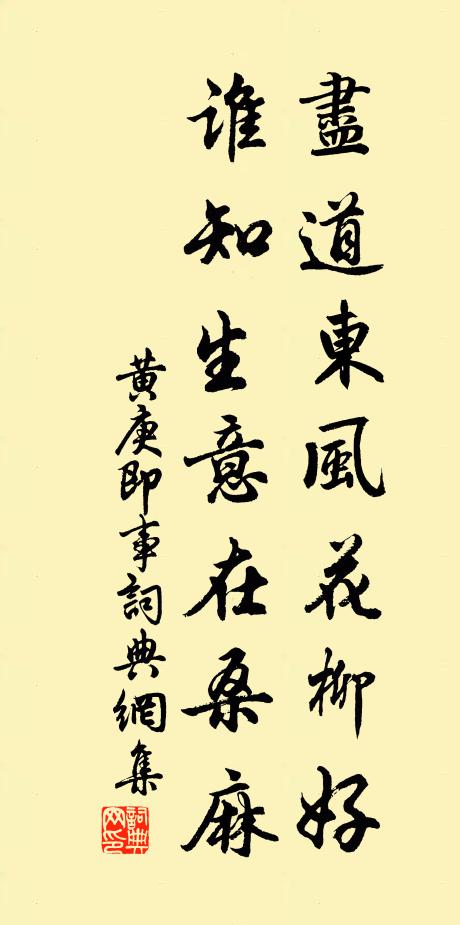 盡道東風花柳好
誰知生意在桑麻
黄庚即事詞典網集
詞典
网印